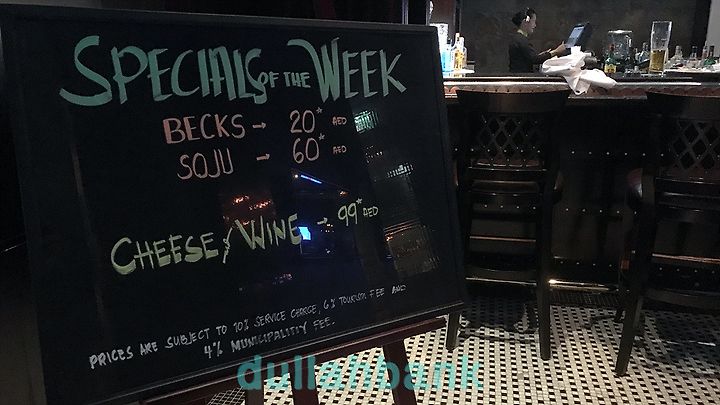 SPECIALS OF THE WEEK
BECKS → 20* AED
SOJU → 60* AED
CHEESE & WINE → 99* AED
PRICES ARE SUBJECT TO 10% SERVICE CHARGE, 6% TOURISM FEE AND
4% MUNICIPALITY FEE.
dullahbank